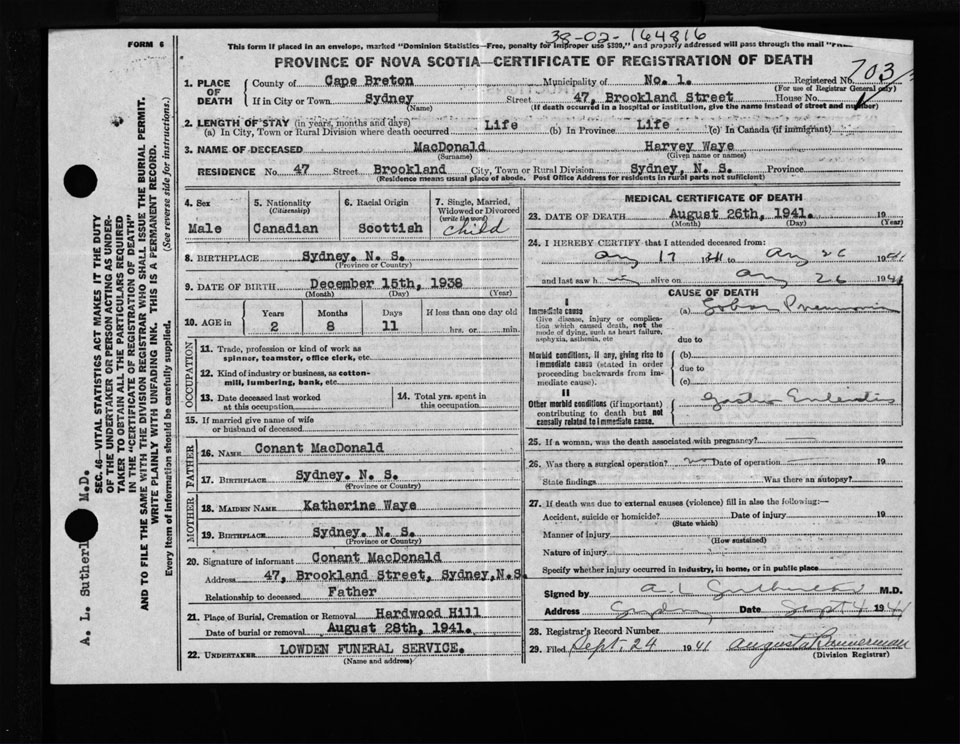 38-02-164816
FORM 6
This form if placed in an envelope, marked "Dominion Statistics—Free, penalty for improper use $300," and properly addressed will pass through the mail "FREE
PROVINCE OF NOVA SCOTIA—CERTIFICATE OF REGISTRATION OF DEATH
1. PLACE OF DEATH County of Cape Breton Municipality of No. 1. Registered No. 703
(For use of Registrar General only)
If in City or Town Sydney Street 47, Brookland Street House No.
(Name) (If death occurred in a hospital or institution, give the name instead of street and number)
2. LENGTH OF STAY (in years, months and days)
(a) In City, Town or Rural Division where death occurred Life (b) In Province Life (c) In Canada (if immigrant)
3. NAME OF DECEASED MacDonald Harvey Waye
(Surname) (Given name or names)
RESIDENCE No. 47 Street Brookland City, Town or Rural Division Sydney, N. S. Province
(Residence means usual place of abode. Post Office Address for residents in rural parts not sufficient)
4. Sex 5. Nationality 6. Racial Origin 7. Single, Married, Widowed or Divorced
(Citizenship) (write the word)
Male Canadian Scottish child
8. BIRTHPLACE Sydney. N. S.
(Province or Country)
9. DATE OF BIRTH December 15th, 1938
(Month) (Day) (Year)
10. AGE in Years Months Days If less than one day old
2 8 11 hrs. or min.
OCCUPATION
11. Trade, profession or kind of work as spinner, teamster, office clerk, etc.
12. Kind of industry or business, as cotton-mill, lumbering, bank, etc.
13. Date deceased last worked at this occupation
14. Total yrs. spent in this occupation
15. If married give name of wife or husband of deceased
FATHER
16. NAME Conant MacDonald
17. BIRTHPLACE Sydney. N. S.
(Province or Country)
MOTHER
18. MAIDEN NAME Katherine Waye
19. BIRTHPLACE Sydney. N. S.
(Province or Country)
20. Signature of informant Conant MacDonald
Address 47, Brookland Street, Sydney, N.S.
Relationship to deceased Father
21. Place of Burial, Cremation or Removal Hardwood Hill
Date of burial or removal August 28th, 1941.
22. UNDERTAKER LOWDEN FUNERAL SERVICE.
(Name and address)
MEDICAL CERTIFICATE OF DEATH
23. DATE OF DEATH August 26th, 1941. 19
(Month) (Day) (Year)
24. I HEREBY CERTIFY that I attended deceased from:
Aug 17 1941 to Aug 26 1941
and last saw h im alive on Aug 26 1941
CAUSE OF DEATH
I
Immediate cause (a) Lobar Pneumonia
Give disease, injury or complication which caused death, not the mode of dying, such as heart failure, asphyxia, asthenia, etc
due to
Morbid conditions, if any, giving rise to immediate cause (stated in order proceeding backwards from immediate cause).
(b)
due to
(c)
II
Other morbid conditions (if important) contributing to death but not causally related to immediate cause.
Gastro Enteritis
25. If a woman, was the death associated with pregnancy?
26. Was there a surgical operation? Date of operation 19
State findings Was there an autopsy?
27. If death was due to external causes (violence) fill in also the following:—
Accident, suicide or homicide? Date of injury 19
(State which)
Manner of injury
(How sustained)
Nature of injury
Specify whether injury occurred in industry, in home, or in public place
Signed by A. L. Sutherland M.D.
Address Sydney Date Sept 4 1941
28. Registrar's Record Number
29. Filed Sept. 24 1941 Augusta Bannerman
(Division Registrar)
A. L. Sutherl M.D.
SEC. 46—VITAL STATISTICS ACT MAKES IT THE DUTY
OF THE UNDERTAKER OR PERSON ACTING AS UNDER-
TAKER TO OBTAIN ALL THE PARTICULARS REQUIRED
IN THE "CERTIFICATE OF REGISTRATION OF DEATH"
AND TO FILE THE SAME WITH THE DIVISION REGISTRAR WHO SHALL ISSUE THE BURIAL PERMIT.
WRITE PLAINLY WITH UNFADING INK. THIS IS A PERMANENT RECORD.
Every item of information should be carefully supplied. (See reverse side for instructions.)